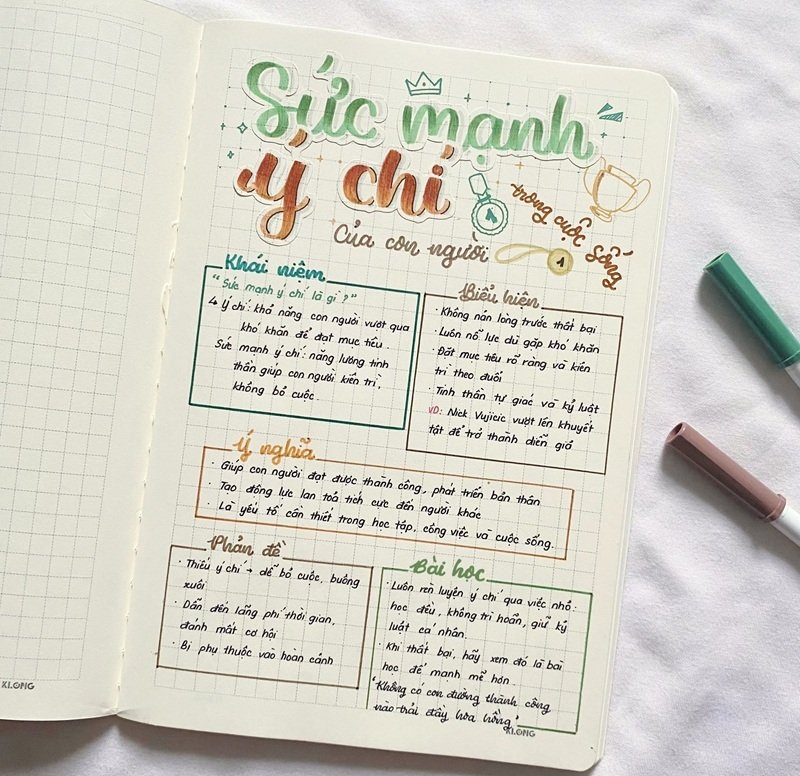 Sức mạnh
ý chí
trong cuộc sống
Của con người
1
Khái niệm
"Sức mạnh ý chí là gì?"
↳ Ý chí: khả năng con người vượt qua
khó khăn để đạt mục tiêu.
Sức mạnh ý chí: năng lượng tinh
thần giúp con người kiên trì,
không bỏ cuộc.
Biểu hiện
· Không nản lòng trước thất bại
· Luôn nỗ lực dù gặp khó khăn
· Đặt mục tiêu rõ ràng và kiên
trì theo đuổi
· Tinh thần tự giác và kỷ luật
VD: Nick Vujicic vượt lên khuyết
tật để trở thành diễn giả
Ý nghĩa
· Giúp con người đạt được thành công, phát triển bản thân
· Tạo động lực lan toả tích cực đến người khác
· Là yếu tố cần thiết trong học tập, công việc và cuộc sống.
Phản đề
· Thiếu ý chí → dễ bỏ cuộc, buông
xuôi
· Dẫn đến lãng phí thời gian,
đánh mất cơ hội
· Bị phụ thuộc vào hoàn cảnh
Bài học
· Luôn rèn luyện ý chí qua việc nhỏ:
học đều, không trì hoãn, giữ kỷ
luật cá nhân.
· Khi thất bại, hãy xem đó là bài
học để mạnh mẽ hơn.
"Không có con đường thành công
nào trải đầy hoa hồng"
KLONG
KLONG